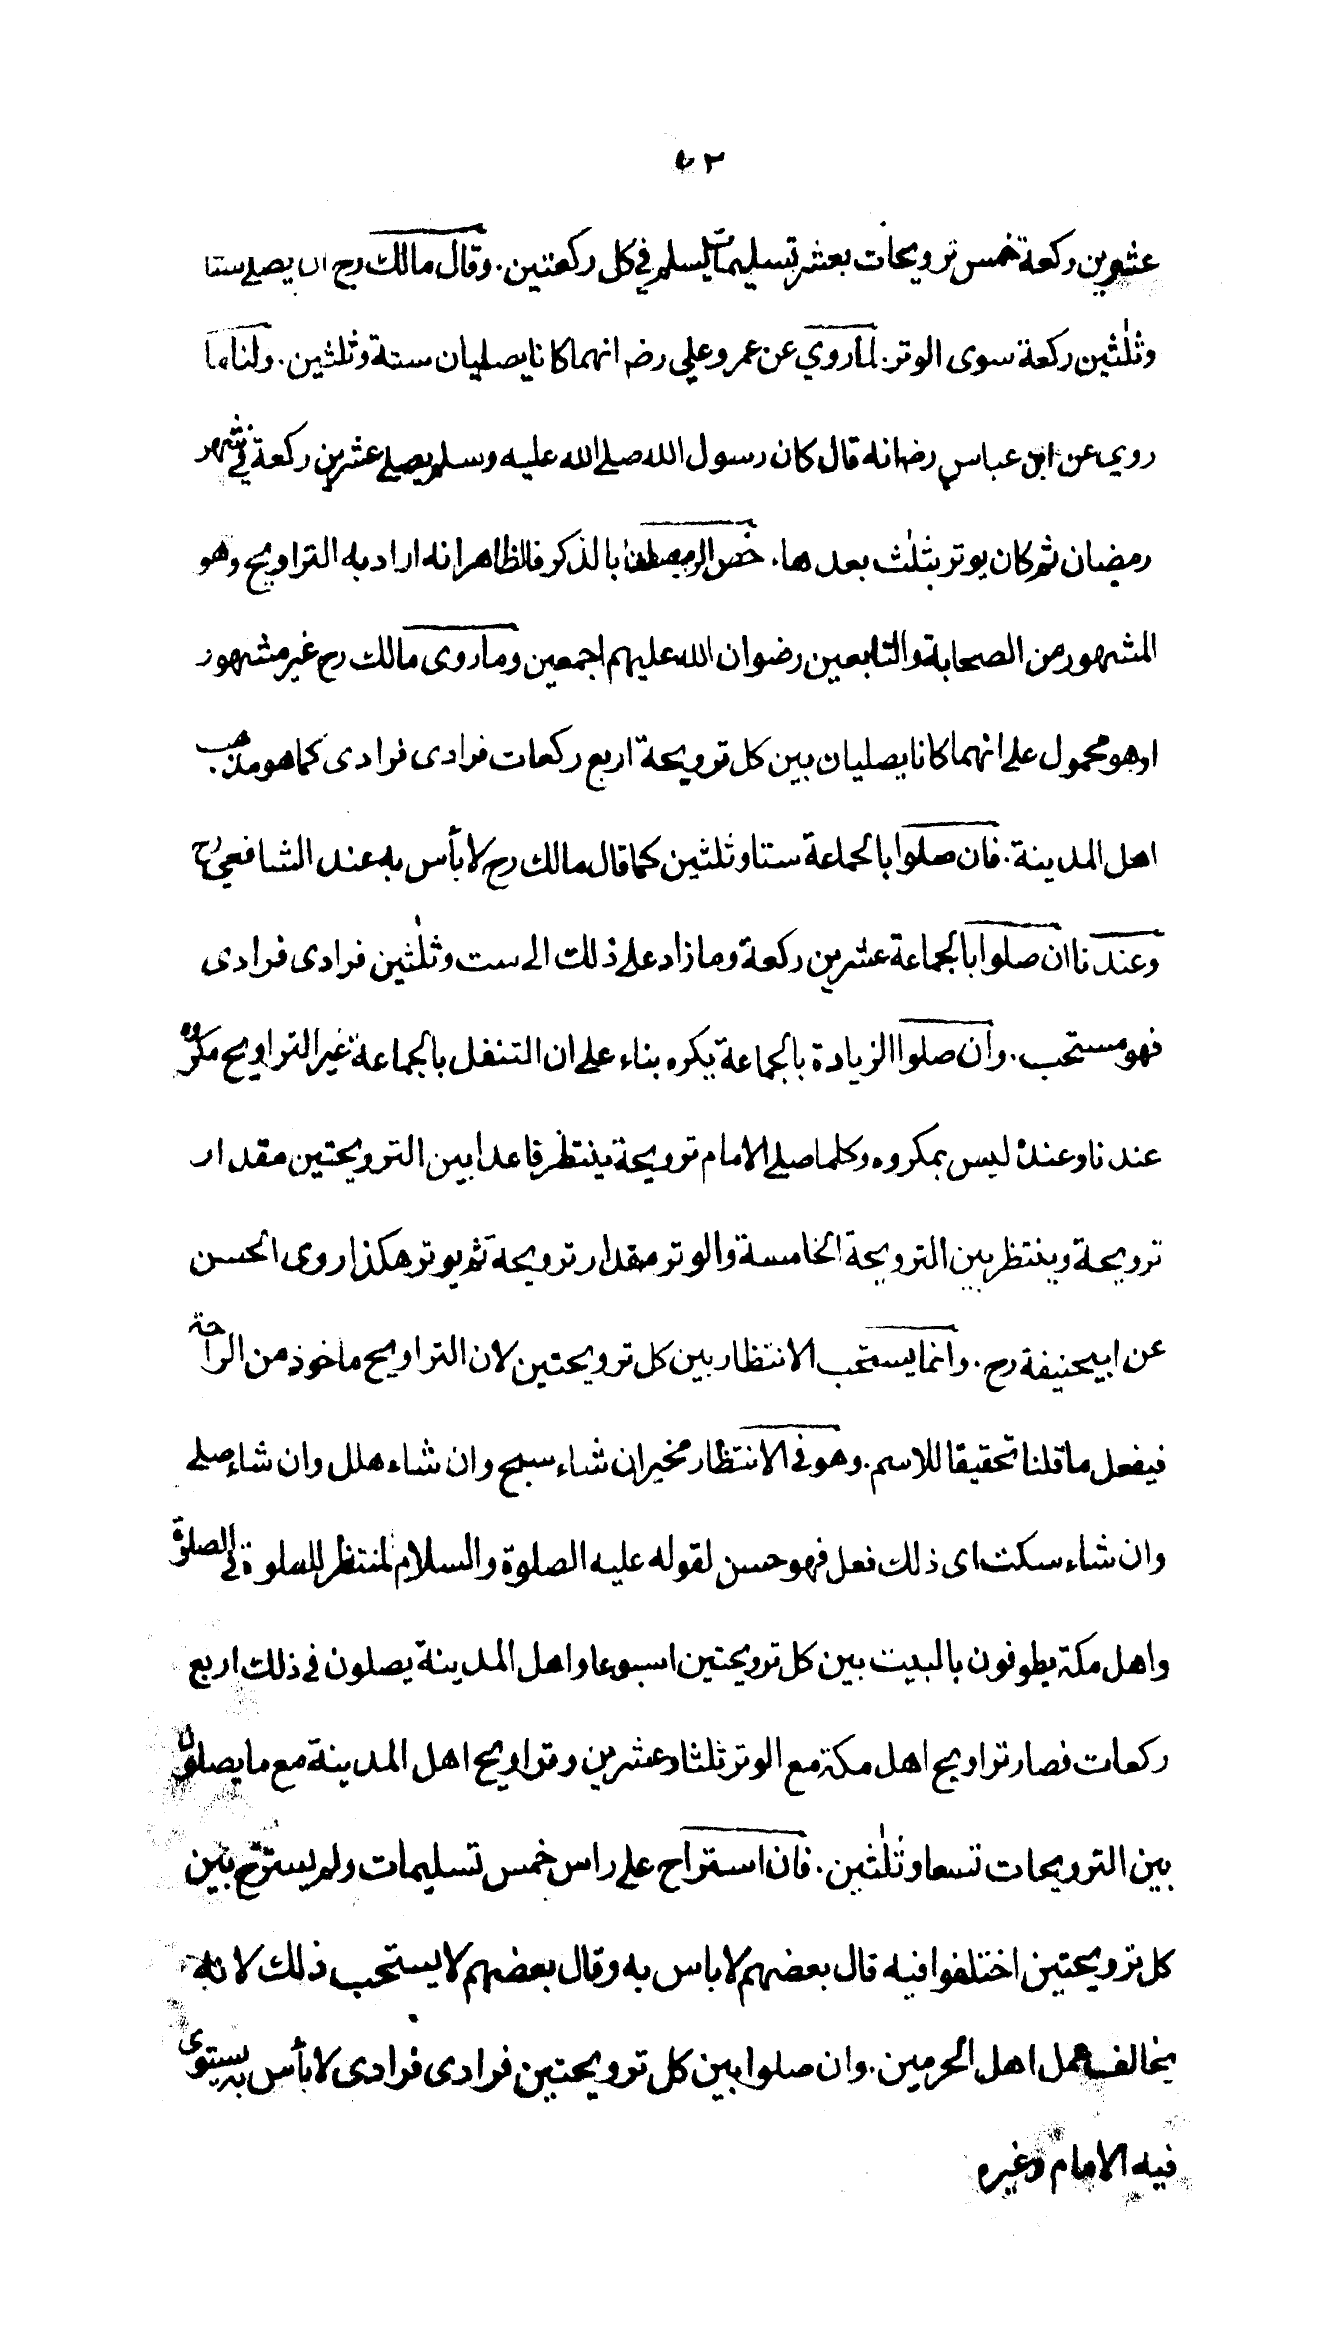 ٧٢
عشرين ركعة خمس ترويحات بعشر تسليمات يسلم في كل ركعتين. وقال مالك رح ان يصلي ستا
وثلٰثين ركعة سوى الوتر. لما روي عن عمر وعلي رضه انهما كانا يصليان ستة وثلثين. ولنا ما
روي عن ابن عباس رضه انه قال كان رسول الله صلے الله عليه وسلم يصلے عشرين ركعة في شهر
رمضان ثم كان يوتر بثلٰث بعدها. خص بالذكر فالظاهر انه اراد به التراويح وهو
المشهور من الصحابة والتابعين رضوان الله عليهم اجمعين وما روى مالك رح غير مشهور
او هو محمول علے انهما كانا يصليان بين كل ترويحة اربع ركعات فرادى فرادى كما هو مذهب
اهل المدينة. فان صلوا بالجماعة ستا وثلثين كما قال مالك رح لا بأس به عند الشافعي رح
وعندنا ان صلوا بالجماعة عشرين ركعة وما زاد علے ذلك الے ست وثلٰثين فرادى فرادى
فهو مستحب. وان صلوا الزيادة بالجماعة يكره بناء علے ان التنفل بالجماعة غير التراويح مكروه
عندنا وعنده ليس بمكروه وكلما صلے الامام ترويحة ينتظر قاعدا بين الترويحتين مقدار
ترويحة وينتظر بين الترويحة الخامسة والوتر مقدار ترويحة ثم يوتر هكذا روى الحسن
عن ابيحنيفة رح. وانما يستحب الانتظار بين كل ترويحتين لان التراويح ماخوذ من الراحة
فيفعل ما قلنا تحقيقا للاسم. وهو في الانتظار مخير ان شاء سبح وان شاء هلل وان شاء صلے
وان شاء سكت اى ذلك فعل فهو حسن لقوله عليه الصلوة والسلام لمنتظر للصلوة في الصلوة
واهل مكة يطوفون بالبيت بين كل ترويحتين اسبوعا واهل المدينة يصلون في ذلك اربع
ركعات فصار تراويح اهل مكة مع الوتر ثلثا وعشرين وتراويح اهل المدينة مع ما يصلون
بين الترويحات تسعا وثلٰثين. فان استراح علے راس خمس تسليمات ولم يسترح بين
كل ترويحتين اختلفوا فيه قال بعضهم لا باس به وقال بعضهم لا يستحب ذلك لانه
يخالف عمل اهل الحرمين. وان صلوا بين كل ترويحتين فرادى فرادى لا بأس به يستوى
فيه الامام وغيره